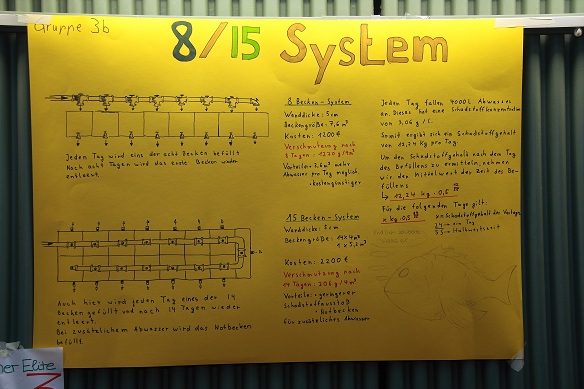 Gruppe 3b
8/15 System
Jeden Tag wird eins der acht Becken befüllt
Nach acht Tagen wird das erste Becken wieder
entleert.
8 Becken-System
Wanddicke: 5cm
Beckengröße: 7,6m³
Kosten: 1200€
Verschmutzung nach
8 Tagen: 1220g/4m³
Vorteile: mehr
Abwasser pro Tag möglich
kostengünstiger
Jeden Tag fallen 4000L Abwasser
an. Dieses hat eine Schadstoffkonzentration
von 3,06g/L.
Somit ergibt sich ein Schadstoffgehalt
von 12,24 Kg pro Tag.
Um den Schadstoffgehalt nach dem Tag
des Befüllens zu ermitteln nehmen
wir den Mittelwert der Zeit des Be-
füllens
↳ 12,24 kg · 0,5
Für die folgenden Tage gilt:
x kg · 0,5
x = Schadstoffgehalt des Vortages
24 → ein Tag
→ Halbwertszeit
15 Becken-System
Wanddicke: 5cm
Beckengröße: 14x4m³
1x5,2m³
Kosten: 2200€
Verschmutzung nach
14 Tagen: 206g/4m³
Vorteile: geringerer
Schadstoffausstoß
Notbecken
für zusätzliches Abwasser
Auch hier wird jeden Tag eines der 14
Becken gefüllt und nach 14 Tagen wieder
entleert.
Bei zusätzlichem Abwasser wird das Notbecken
befüllt
ner Elite